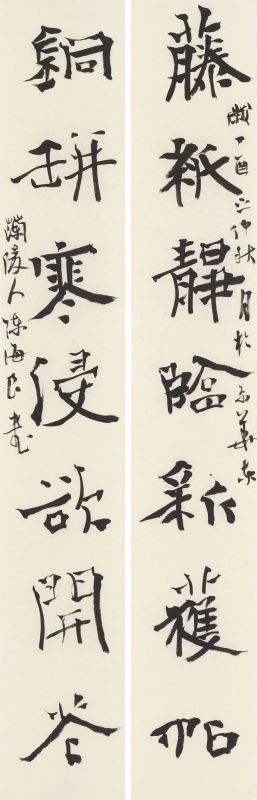 藤紙靜臨新獲帖
歲丁酉之仲秋月於京華
銅缾寒浸欲開花
蘭陵人陳海良書